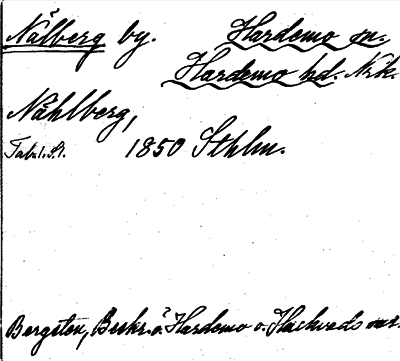 Nålberg by. Hardemo sn.
Hardemo hd. Nrk.
Nåhlberg,
Tab. 1850 Sthlm.
Bergsten, Beskr. ö. Hardemo o. Hackvads